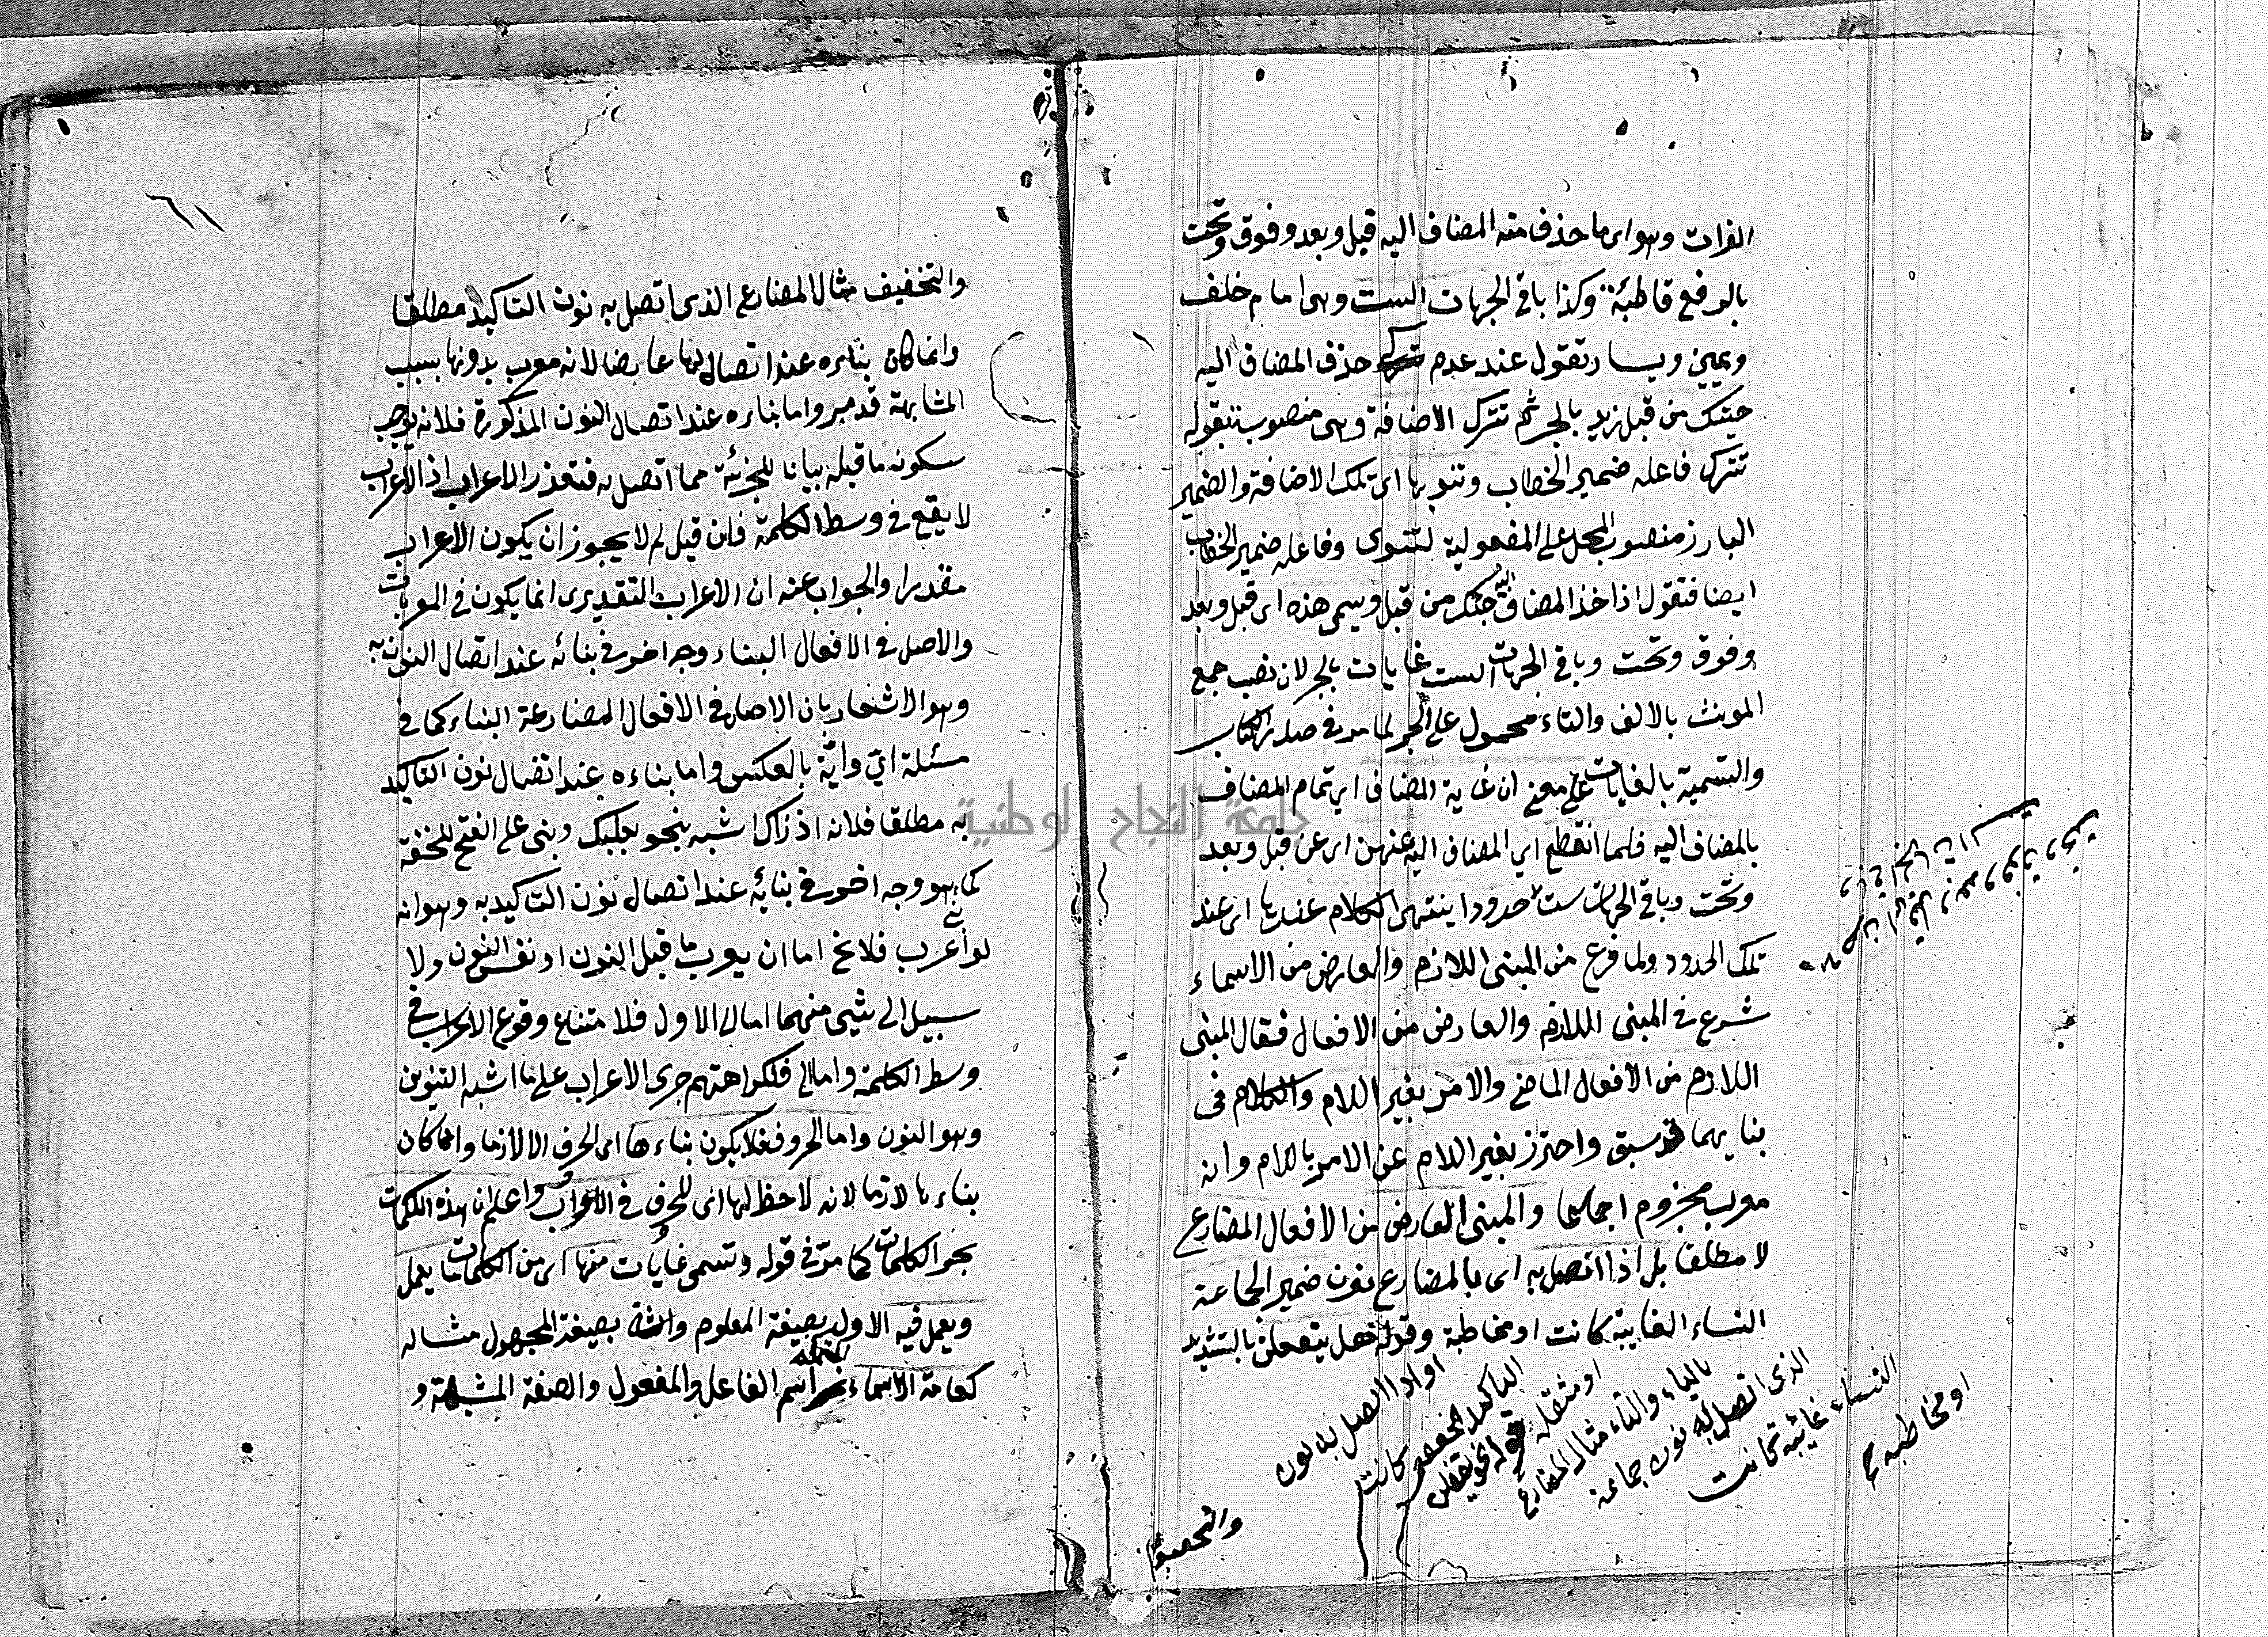 الفرات وهو اى ما حذف منه المضاف اليه قبل وبعد وفوق وتحت
بالرفع قاطبة وكذا باقى الجهات الست وهى امام خلف
ويمين ويسار تقول عند عدم حذف المضاف اليه
جئتك من قبل زيد بالجر ثم تترك الاضافة وهى منصوب بقوله
تترك فاعله ضمير الخطاب وتنويها اى تلك الاضافة والضمير
البارز منصوب المحل على المفعولية لتنوى وفاعله ضمير الخطاب
ايضا فتقول اذا حذف المضاف اليه جئتك من قبل ويسمى هذه اى قبل وبعد
وفوق وتحت وباقى الجهات الست غايات بالجر لان نصب جمع
المونث بالالف والتاء محمول على الجر لما مر فى صدر الكتاب
والتسمية بالغايات على معنى ان غاية المضاف اى تمام المضاف
بالمضاف اليه فلما انقطع اى المضاف اليه عنهن اى عن قبل وبعد
وتحت وباقى الجهات ست حدودا ينتهى الكلام عندها اى عند
تلك الحدود ولما فرغ من المبنى اللازم والعارض من الاسماء
شرع فى المبنى اللازم والعارض من الافعال فقال المبنى
اللازم من الافعال الماضى والامر بغير اللام والكلام فى
بنايهما قد سبق واحترز بغير اللام عن الامر باللام وانه
معرب مجزوم اجماعا والمبنى العارض من الافعال المضارع
لا مطلقا بل اذا اتصل به اى بالمضارع نون ضمير الجماعة
النساء الغايبة كانت او مخاطبة وقوله هل يفعلن بالتشديد
او اذا اتصل به نون
التاكيد مخففة كانت
او مثقلة قوله نحو يفعلن
بالياء والتاء مثال المضارع
الذى اتصل به نون جماعة
النساء غائبة كانت
او مخاطبة
والتخفيف
٦١
والتخفيف مثال المضارع الذى اتصل به نون التاكيد مطلقا
وانما كان بناءه عند اتصالهما عارضا لانه معرب بدونها بسبب
المشابهة قد مر واما بناءه عند اتصال النون المذكورة فلانه يوجب
سكون ما قبله بيانا للجزئية مما اتصل به فتعذر الاعراب اذ الاعراب
لا يقع فى وسط الكلمة فان قيل لم لا يجوز ان يكون الاعراب
مقدرا والجواب عنه ان الاعراب التقديرى انما يكون فى المعربات
والاصل فى الافعال البناء وجه اخر فى بنائه عند اتصال النون به
وهو الاشعار بان الاصل فى الافعال المضارعة البناء كما فى
مسئلة اىّ وايّة بالعكس واما بناءه عند اتصال نون التاكيد
به مطلقا فلانه اذ ذاك اشبه بنحو بعلبك وبنى على الفتح للخفة
كما هو وجه اخر فى بنائه عند اتصال نون التاكيد به وهو انه
لو اعرب فلا يخ اما ان يعرب ما قبل النون او نفس النون ولا
سبيل الى شئ منهما اما الاول فلامتناع وقوع الاعراب فى
وسط الكلمة واما فلكراهتهم جرى الاعراب على ما اشبه التنوين
وهو النون واما الحروف فلا يكون بناءها اى الحرف الا لازما وانما كان
بناءها لازما لانه لا حظ لها اى للحرف فى الاعراب واعلم ان هذه الكلمات
بجر الكلمات كما مرّ فى قوله وتسمى غايات منها اى من الكلمات ما يعمل
ويعمل فيه الاول بصيغة المعلوم والثانى بصيغة المجهول مثاله
كعامة الاسماء اسم الفاعل والمفعول والصفة المشبهة و
جامعة النجاح الوطنية